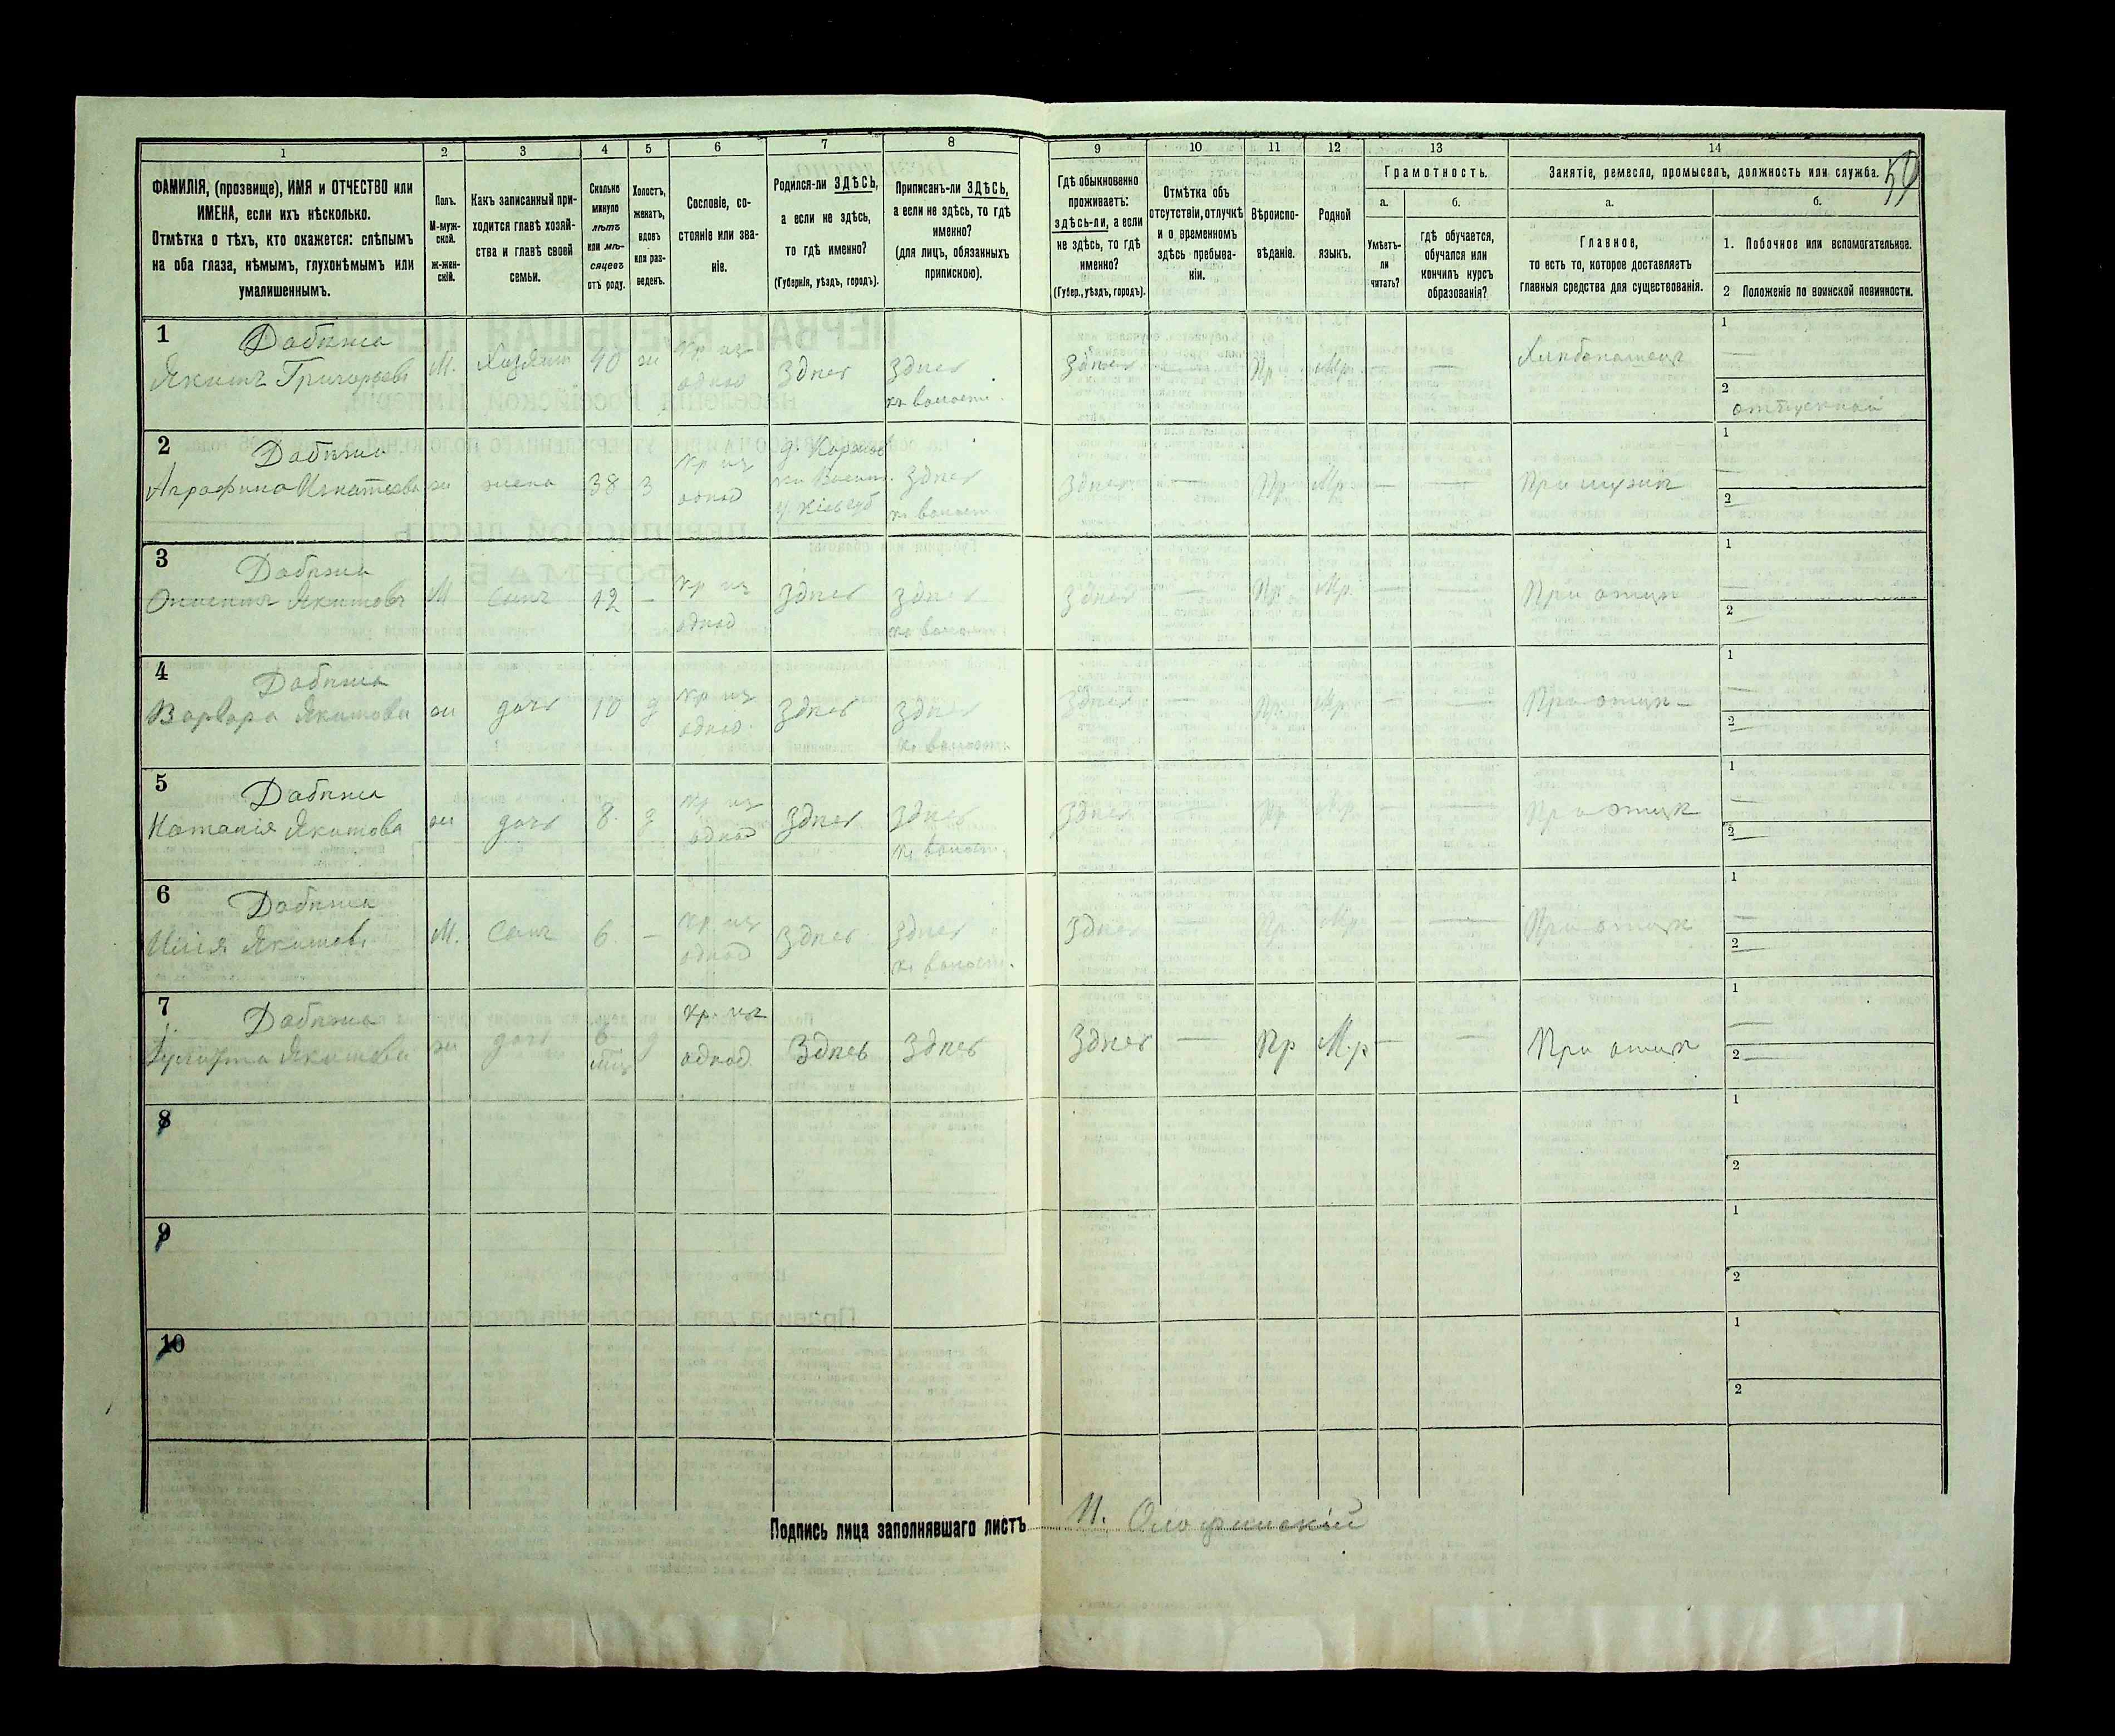 50
1 2 3 4 5 6 7 8 9 10 11 12 13 14
ФАМИЛІЯ, (прозвище), ИМЯ и ОТЧЕСТВО или ИМЕНА, если ихъ нѣсколько.
Отмѣтка о тѣхъ, кто окажется: слѣпымъ на оба глаза, нѣмымъ, глухонѣмымъ или умалишеннымъ.
Полъ. М-мужской. ж-женскій.
Какъ записанный приходится главѣ хозяйства и главѣ своей семьи.
Сколько минуло лѣтъ или мѣсяцевъ отъ роду.
Холостъ, женатъ, вдовъ или разведенъ.
Сословіе, состояніе или званіе.
Родился-ли ЗДѢСЬ, а если не здѣсь, то гдѣ именно?
(Губернія, уѣздъ, городъ).
Приписанъ-ли ЗДѢСЬ, а если не здѣсь, то гдѣ именно?
(для лицъ, обязанныхъ припискою).
Гдѣ обыкновенно проживаетъ: здѣсь-ли, а если не здѣсь, то гдѣ именно?
(Губер., уѣздъ, городъ).
Отмѣтка объ отсутствіи, отлучкѣ и о временномъ здѣсь пребываніи.
Вѣроисповѣданіе.
Родной языкъ.
Грамотность.
а. Умѣетъ-ли читать?
б. гдѣ обучается, обучался или кончилъ курсъ образованія?
Занятіе, ремесло, промыселъ, должность или служба.
а. Главное, то есть то, которое доставляетъ главныя средства для существованія.
б. 1. Побочное или вспомогательное.
2 Положеніе по воинской повинности.
1 Дабѣжа
Якимъ Григорьевъ М. Хозяинъ 40 ж кр из однод здѣсь здѣсь къ волости здѣсь — Пр. Мр. — — Хлѣбопашецъ 1 — 2 отпускной
2 Дабѣжа
Аграфина Игнатьева ж жена 38 з кр из однод здѣсь къ волост. здѣсь — Пр. Мр. — — При мужѣ 1 — 2 —
3 Дабѣжа
Якимовъ М Сынъ 12 — кр из однод здѣсь здѣсь къ волост. здѣсь — Пр. Мр. — — При отцѣ 1 — 2 —
4 Дабѣжа
Варвара Якимова ж дочь 10 д кр из однод. здѣсь здѣсь къ волости. здѣсь — Пр. Мр. — — При отцѣ — 1 — 2 —
5 Дабѣжа
Наталія Якимова ж дочь 8. д кр из однод здѣсь здѣсь къ волост. здѣсь — Пр. Мр. — — При отцѣ 1 — 2 —
6 Дабѣжа
Илія Якимовъ М. Сынъ 6. — кр из однод здѣсь. здѣсь къ волост. здѣсь — Пр. Мр. — — При отцѣ 1 — 2 —
7 Дабѣжа
Якимова ж дочь 6 мѣс д кр. из однод. здѣсь здѣсь здѣсь — Пр М.р — — При отцѣ 1 — 2 —
8 1 2
9 1 2
10 1 2
Подпись лица заполнявшаго листъ